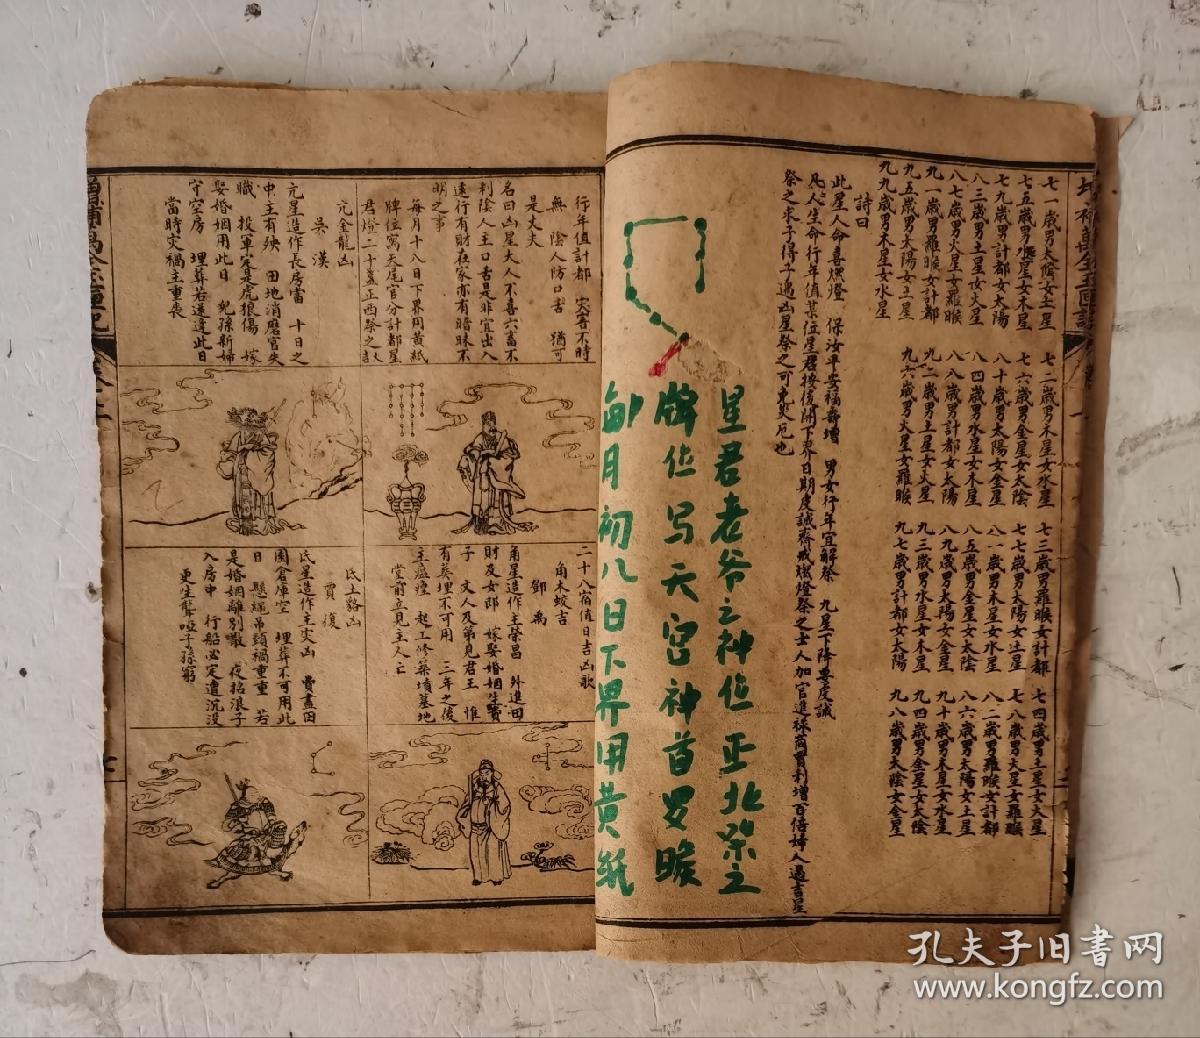 七一歲男太陰女土星
七二歲男木星女水星
七三歲男羅睺女計都
七四歲男土星女火星
七五歲男水星女木星
七六歲男金星女太陰
七七歲男太陽女土星
七八歲男火星女羅睺
七九歲男計都女太陽
八十歲男太陽女金星
八一歲男木星女水星
八二歲男羅睺女計都
八三歲男土星女火星
八四歲男水星女木星
八五歲男金星女太陰
八六歲男太陽女土星
八七歲男火星女羅睺
八八歲男計都女太陽
八九歲男太陽女金星
九十歲男木星女水星
九一歲男羅睺女計都
九二歲男土星女火星
九三歲男水星女木星
九四歲男金星女太陰
九五歲男太陽女土星
九六歲男火星女羅睺
九七歲男計都女太陽
九八歲男太陰女金星
九九歲男木星女水星
詩曰
此星人命喜燃燈 保汝平安福壽增 男女行年宜解祭 九星下降要虔誠
凡人生命行年值某位星君按後開下界日期虔誠齋戒燃燈祭之士人加官進祿商賈利增百倍婦人遇吉星
祭之求子得子遇凶星祭之可免災厄也
星君老爷之神位正北祭之
牌位写天宫神首罗睺
每月初八日下界用黄纸
行年值計都 災害不時
無 陰人防口舌 猶可
是丈夫
名曰凶星大人不喜六畜不
利陰人主口舌是非宜出入
遠行有財在家亦有暗昧不
明之事
每月十八日下界用黃紙
牌位寫天尾官分計都星
君燈二十盞正西祭之
亢金龍凶
吳漢
亢星造作長房當 十日之
中主有殃 田地消磨官失
職 投軍定是虎狼傷 嫁
娶婚姻用此日 兒孫新婦
守空房 埋葬若還逢此日
當時災禍主重喪
二十八宿值日吉凶歌
角木蛟吉
鄧禹
角星造作主榮昌 外進田
財及女郎 嫁娶婚姻生貴
子 文人及第見君王 惟
有葬埋不可用 三年之後
主瘟㾮 起工修築墳墓地
堂前立見主人亡
氐土貉凶
賈復
氐星造作主災凶 費盡田
園倉庫空 埋葬不可用此
日 懸繩吊頸禍重重 若
是婚姻離別散 夜招浪子
入房中 行船必定遭沉沒
更生聾啞子孫窮
孔夫子旧书网
www.kongfz.com